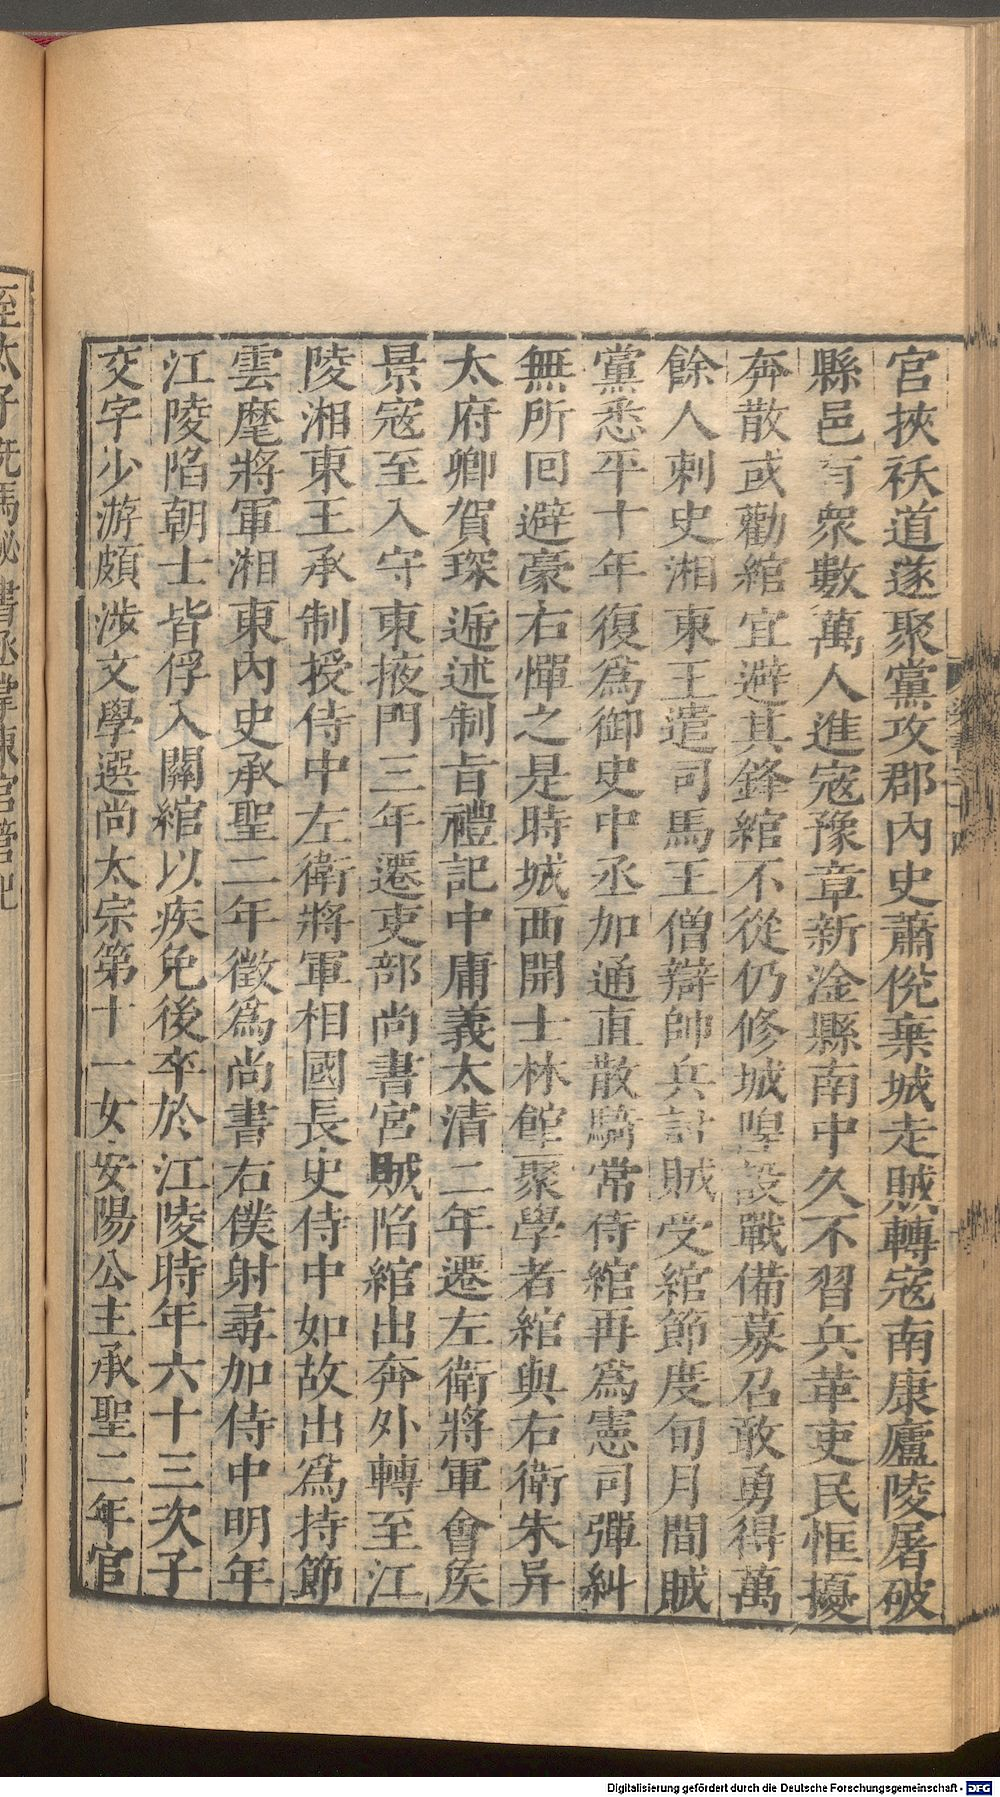 官挾祅道遂聚黨攻郡內史蕭侻棄城走賊轉寇南康廬陵屠破
縣邑有衆數萬人進寇豫章新淦縣南中久不習兵革吏民恇擾
奔散或勸綰宜避其鋒綰不從仍修城隍設戰備募召敢勇得萬
餘人刺史湘東王遣司馬王僧辯帥兵討賊受綰節度旬月間賊
黨悉平十年復爲御史中丞加通直散騎常侍綰再爲憲司彈糾
無所回避豪右憚之是時城西開士林館聚學者綰與右衛朱异
太府卿賀琛遞述制旨禮記中庸義太清二年遷左衛將軍會侯
景寇至入守東掖門三年遷吏部尚書宮賊陷綰出奔外轉至江
陵湘東王承制授侍中左衛將軍相國長史侍中如故出爲持節
雲麾將軍湘東內史承聖二年徵爲尚書右僕射尋加侍中明年
江陵陷朝士皆俘入關綰以疾免後卒於江陵時年六十三次子
交字少游頗涉文學選尚太宗第十一女安陽公主承聖二年官
至太子洗馬祕書丞掌東宮管記
Digitalisierung gefördert durch die Deutsche Forschungsgemeinschaft - DFG